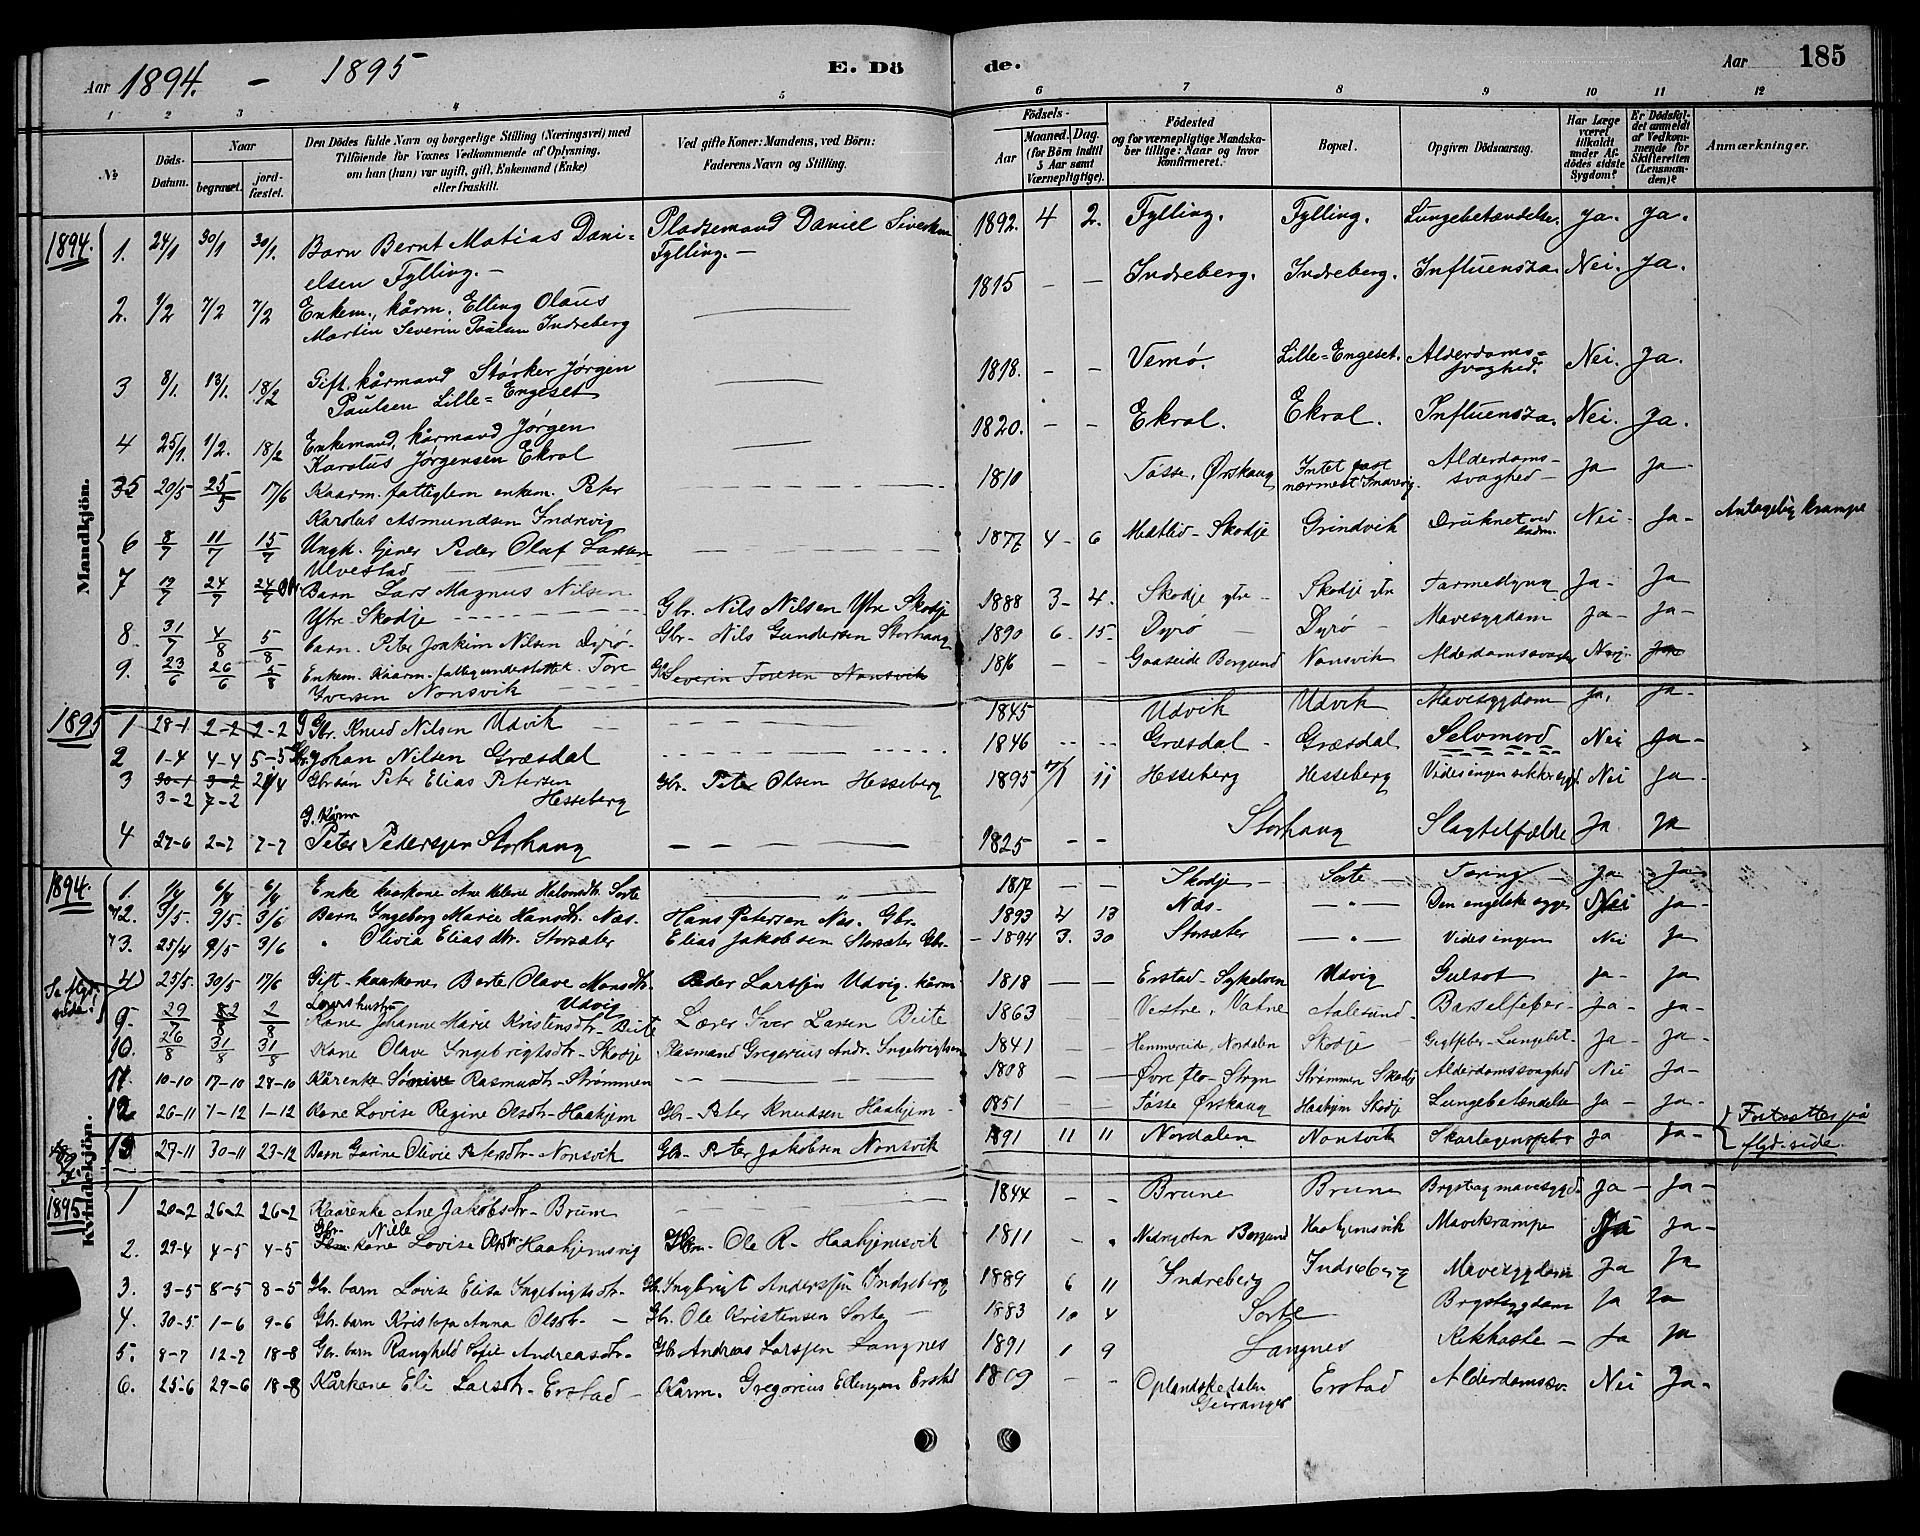 Aar 1894. - 1895 E. Dö de. Aar 185
1 2 3 4 5 6 7 8 9 10 11 12
№
Döds-Datum.
Naar
begravet.
jord-fæstet.
Den Dödes fulde Navn og borgerlige Stilling (Næringsvei) med
Tilföiende for Voxnes Vedkommende af Oplysning,
om han (hun) var ugift, gift, Enkemand (Enke)
eller fraskilt.
Ved gifte Koner: Mandens, ved Börn:
Faderens Navn og Stilling.
Födsels-
Aar
Maaned. Dag.
(for Börn indtil
5 Aar samt
Værnepligtige).
Födested
og for værnepligtige Mandska-
ber tillige: Naar og hvor
konfirmeret.
Bopæl.
Opgiven Dödsaarsag.
Har Læge
været
tilkaldt
under Af-
dödes sidste
Sygdom?
Er Dödsfal-
det anmeldt
af Vedkom-
mende for
Skifteretten
(Lensman-
den)?
Anmærkninger.
Mandkjön.
1894. 1. 24/1 30/1 30/1. Barn Bernt Matias Dani= Pladsemand Daniel 1892. 4 2. Fylling. Fylling. Lungebetændelse. Ja. Ja.
elsen Fylling. — Fylling. —
2. 1/2 7/2 7/2 Enkem., kårm. Elling Olaus 1815 — — Indreberg. Indreberg. Influensza. Nei. Ja.
Martin Severin Paulsen Indreberg
3 8/1. 13/1. 18/2 Gift. kårmand Størker Jørgen 1818. — — Vemø. Lille=Engeset. Alderdoms= Nei. Ja.
Paulsen Lille=Engeset svaghed.
4 25/1. 1/2. 18/2 Enkemand, kårmand Jørgen 1820. — — Ekrol. Ekrol. Influensza. Nei. Ja.
Karolus Jørgensen Ekrol
5 20/5 25/5 17/6 Kaarm. fattiglem enkem. Peter 1810 Tøsse, Ørskaug Intet fast Alderdoms- Ja Ja
Karolus Asmundsen Indrevig nærmest Indrevig svaghed —
6 8/7 11/7 15/7 Ungk. tjener Peder Olaf Larsen 1877 4 - 6 Mættlid - Skodje Grindvik Druknet ved Nei - Ja - Antagelig krampe
Ulvestad
7 19/7 24/7 24/7 Barn Lars Magnus Nilsen Gbr. Nils Nilsen Ytre Skodje 1888 3 - 4. Skodje ytre - Skodje ytre Ja - Ja
Ytre Skodje
8. 31/7 4/8 5/8 barn. Peter Joakim Nilsen Dyrø- Gbr. Nils Gundersen Storhaug 1890 6. 15 Dyrø Dyrø Mavesygdom Ja - Ja -
9. 23/6 26/6 5/8 Enkem. Kaarm. Tore Severin Toresen Nonsvik 1816 — — Gaaseide Borgund Nonsvik Nei Ja
Iversen Nonsvik
1895 1 28-1 2-2 2-2 Gbr. Knud Nilsen Udvik 1845 Udvik Udvik Mavesygdom Ja. Ja -
2 1-4 4-4 5-5 Johan Nilsen Græsdal 1846 Græsdal - Græsdal Selvmord Nei Ja -
3 30-1 3-2 Gbr.søn Peter Elias Petersen Gbr. Peter Olsen Hesseberg 1895 11 Hesseberg Hesseberg Nei Ja -
3-2 7-2 Hesseberg
G. Kårm
4 27-6 2-7 7-7 Peter Pedersen Storhaug 1825 - - Storhaug Slagtilfælde Ja Ja
Kvindekjön.
1894. 1. 1/4 6/4 6/4 Enke kaarkone Ane Helene Sorte 1817 — — Skodje - Sorte — Tæring — Ja - Ja -
2. 3/5 9/5 3/6 Barn Ingeborg Marie Hansdtr. Næs. Hans Petersen Næs. Gbr. 1893 4 13 Næs. — „ — Den engelske syge Nei Ja -
3. 25/4 9/5 3/6 „ Olivia Eliasdtr. Storsæter Elias Jakobsen Storsæter Gbr. - 1894 3. 30 Storsæter — „ — Vides ingen Nei Ja
4 25/5 30/5 17/6 Gift. kaarkone Berte Olave Monsdtr. Peder Larsen Udvig. kårm 1818 — — Erstad - Sykelven Udvig Gulsot Ja - Ja
Lærerhustru Udvig
9. 29/7 2 2/8 Kone Johanne Marie Kristensdtr. Beite Lærer Iver Larsen Beite 1863 Vestre, Vatne Aalesund Barselfeber - Ja - Ja -
10. 26/8 31/8 31/8 Kone Olave Ingebrigtsdtr. Skodje Plasmand Gregorius Andr. Ingebrigtsen 1841 — — Hemmereide, Nordalen Skodje Gigtfeber - Lungebet. Ja - Ja -
11 10-10 17-10 28-10 Kårenke Rasmusdtr. Strømmen 1808 Øvre Flo - Stryn Strømmen Skodje Alderdomssvaghed Nei Ja -
12 26-11 1-12 1-12 Kone Lovise Regine Olsdtr. Haahjem Gbr. Peter Knudsen Haahjem 1851 Tøsse Ørskaug Haahjem Skodje Lungebetændelse Ja - Ja - Fortsættes på
13 27-11 30-11 23-12 Barn Garine Olivie Petersdtr. Nonsvik Gbr. Peter Jakobsen Nonsvik 1891 11 11 Nordalen Nonsvik Skarlagensfeber Ja Ja - flgd. side.
1895 1 20-2 26-2 26-2 Kaarenke Ane Jakobsdtr. Brune 1844 - „ Brune Brune Brystog mavesygd. Ja - Ja -
Gbr. Nille
2. 29-4 4-5 4-5 kone Lovise Olsdtr. Haahjemsvig Gbr. Ole R. Haahjemsvik 1811 - „ Borgund Haahjemsvik Mavekrampe Ja Ja -
3. 3-5 8-5 8-5 Gbr. barn Lovise Elisa Ingebrigtsdtr. Gbr. Ingebrigt Anderssen Indreberg 1889 6 11 Indreberg Indreberg Mavesygdom Ja Ja
4. 30-5 1-6 9-6 Gbr. barn Anna Olsdtr. — Gbr. Ole Kristensen Sorte — 1883 10 4 Sorte Brystsygdom Ja Ja
5. 8-7 12-7 18-8 Gbr. barn Ranghild Sofie Andreasdtr. Gbr. Andreas Larssen Langnes 1891 1 9 Langnes Kikhoste — Ja Ja
6. 25-6 29-6 18-8 Kårkone Eli Larsdtr. Erstad — Kårm. Gregorius Ellingsen Erstad 1819 - - Oplandskedalen Erstad Alderdomssv. Nei Ja -
Geiranger